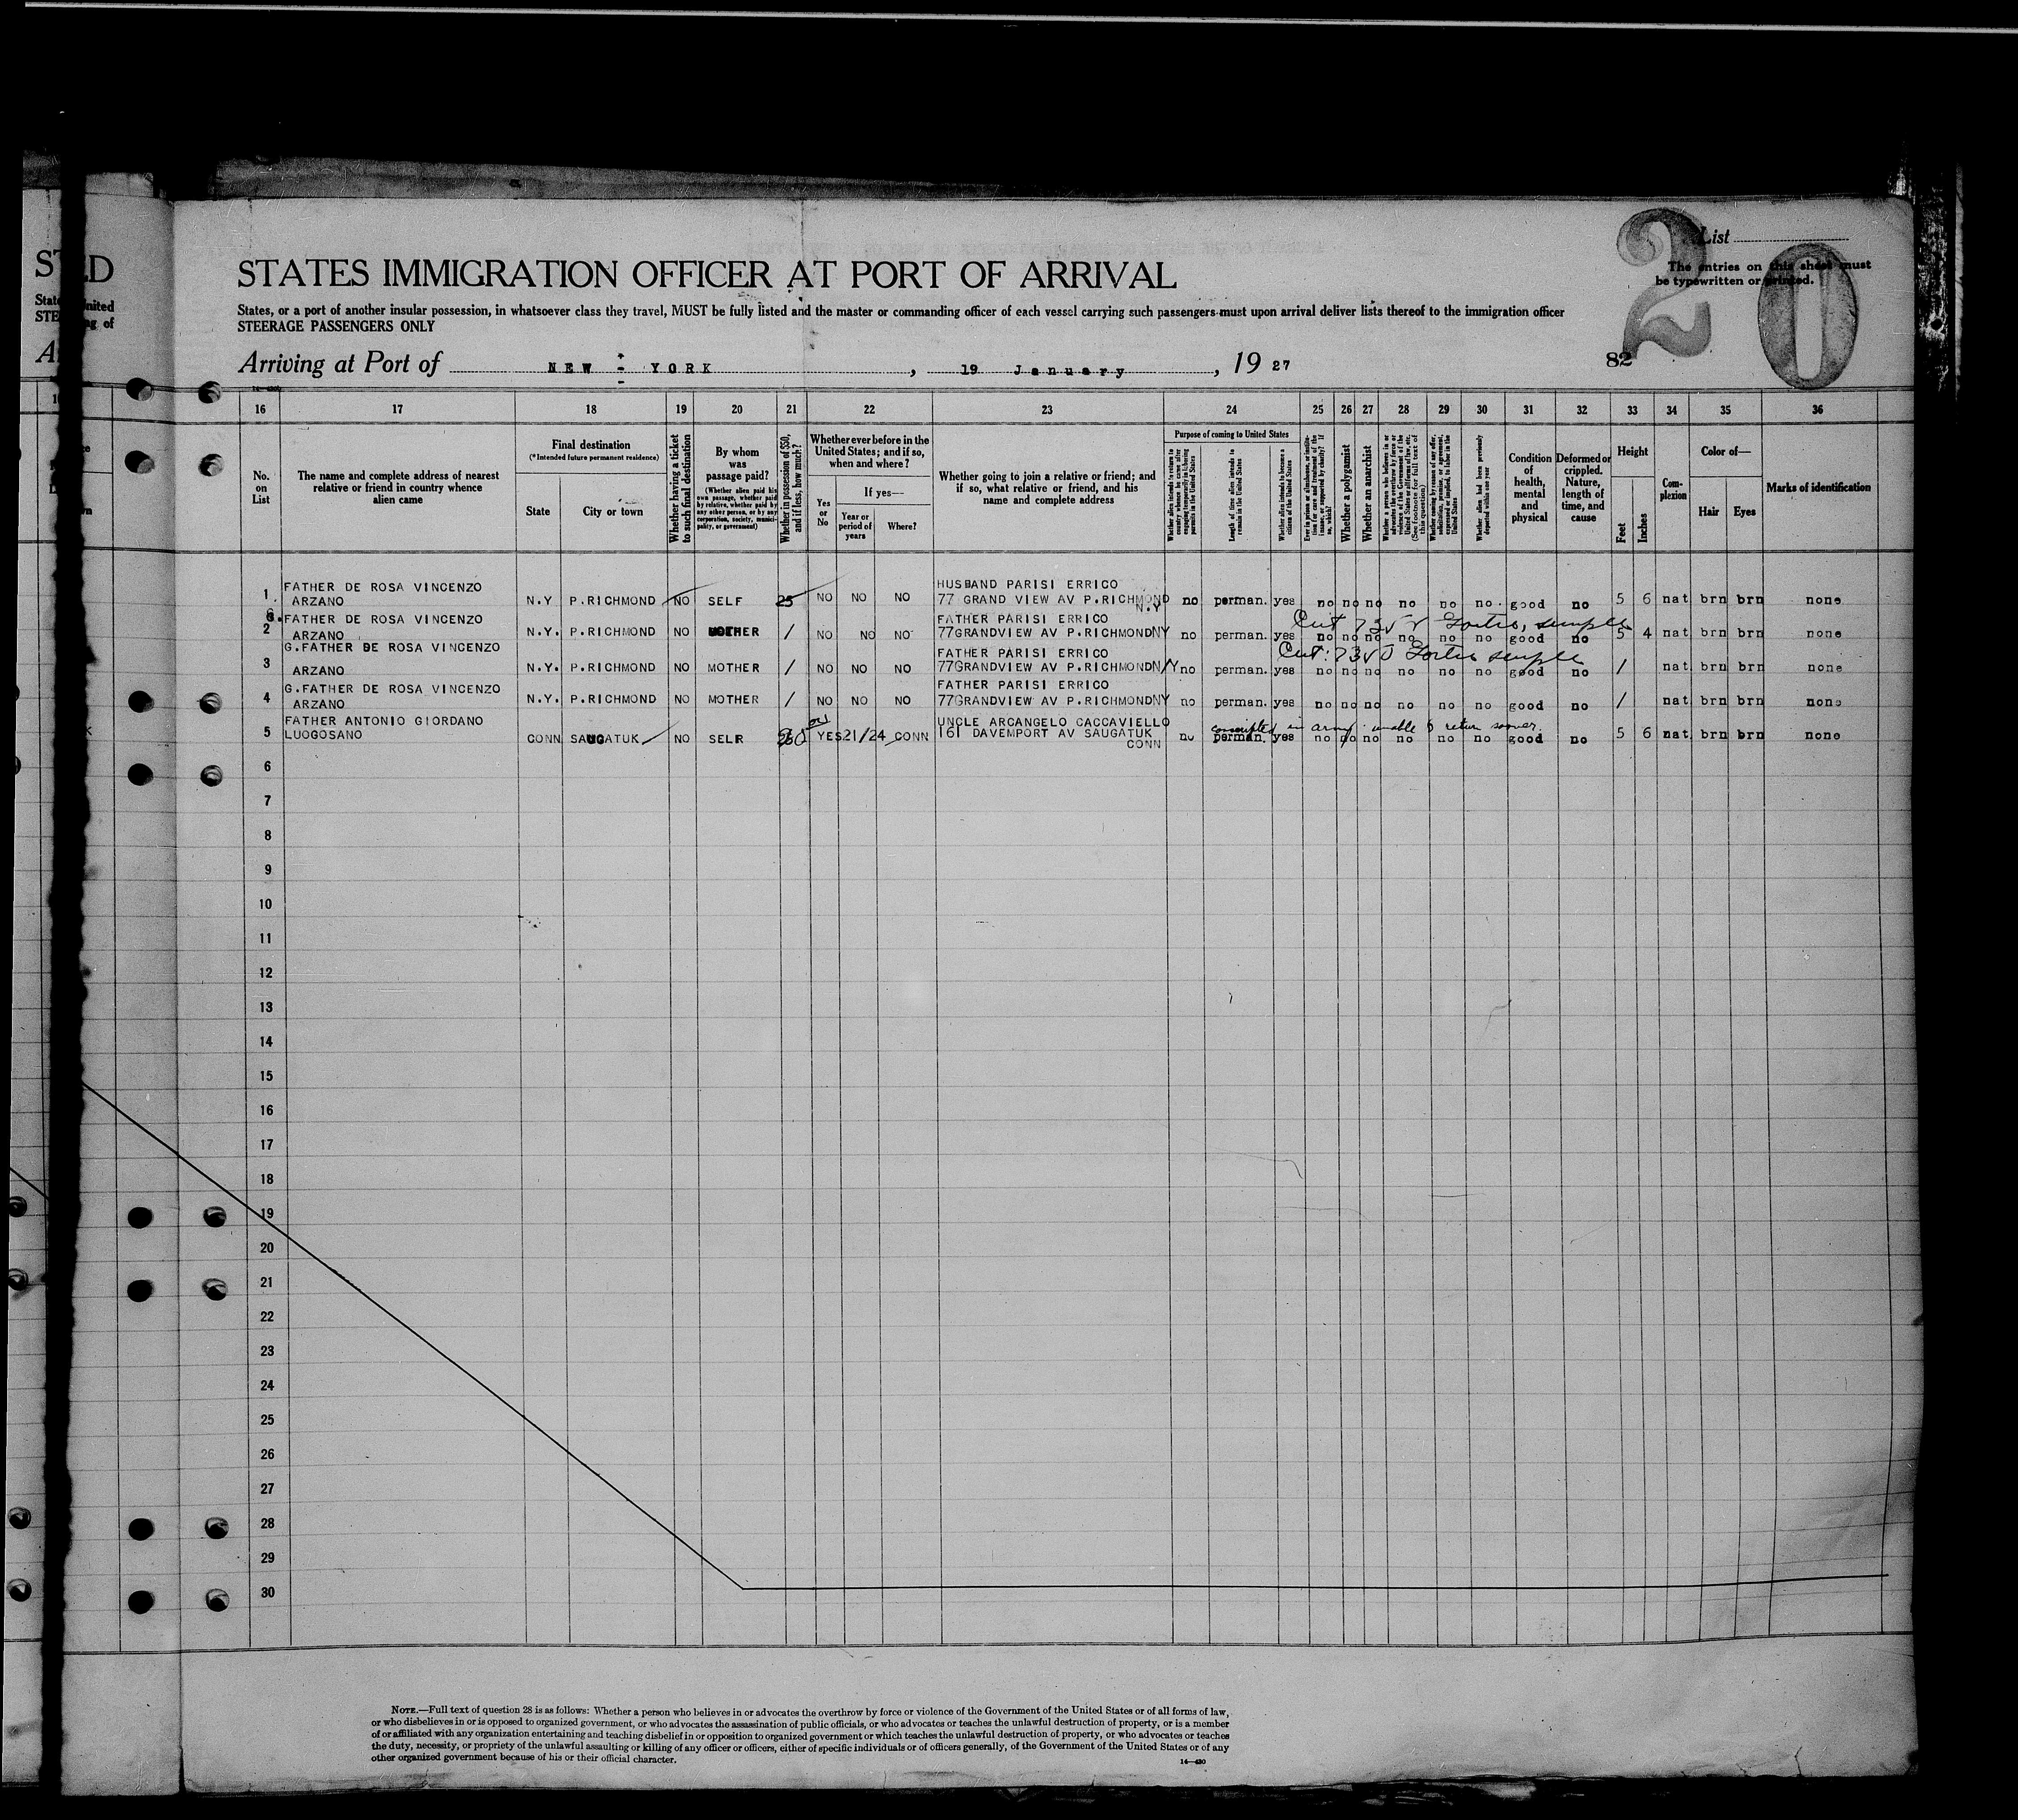 STATES IMMIGRATION OFFICER AT PORT OF ARRIVAL
List
The entries on this sheet must
be typewritten or printed.
20
States, or a port of another insular possession, in whatsoever class they travel, MUST be fully listed and the master or commanding officer of each vessel carrying such passengers must upon arrival deliver lists thereof to the immigration officer
STEERAGE PASSENGERS ONLY
Arriving at Port of NEW - YORK, 19 January, 19 27
82
16 17 18 19 20 21 22 23 24 25 26 27 28 29 30 31 32 33 34 35 36
No. on List
The name and complete address of nearest relative or friend in country whence alien came
Final destination
(*Intended future permanent residence)
State
City or town
Whether having a ticket to such final destination
By whom was passage paid?
(Whether alien paid his own passage, whether paid by relative, whether paid by any other person, or by any corporation, society, municipality, or government)
Whether in possession of $50, and if less, how much?
Whether ever before in the United States; and if so, when and where?
Yes or No
If yes—
Year or period of years
Where?
Whether going to join a relative or friend; and if so, what relative or friend, and his name and complete address
Purpose of coming to United States
Whether alien intends to return to country whence he came after engaging temporarily in laboring pursuits in the United States
Length of time alien intends to remain in the United States
Whether alien intends to become a citizen of the United States
Ever in prison or almshouse, or institution for care and treatment of the insane, or supported by charity? If so, which?
Whether a polygamist
Whether an anarchist
Whether a person who believes in or advocates the overthrow by force or violence of the Government of the United States or all forms of law, etc. (See footnote for full text of this question)
Whether coming by reason of any offer, solicitation, promise, or agreement, expressed or implied, to labor in the United States
Whether alien had been previously deported within one year
Condition of health, mental and physical
Deformed or crippled. Nature, length of time, and cause
Height
Feet
Inches
Com-plexion
Color of—
Hair
Eyes
Marks of identification
1 FATHER DE ROSA VINCENZO ARZANO N.Y P.RICHMOND NO SELF 25 NO NO NO HUSBAND PARISI ERRICO 77 GRAND VIEW AV P.RICHMOND N.Y no perman. yes no no no no no no good no 5 6 nat brn brn none
2 G.FATHER DE ROSA VINCENZO ARZANO N.Y. P.RICHMOND NO MOTHER / NO NO NO FATHER PARISI ERRICO 77GRANDVIEW AV P.RICHMONDNY no perman. yes no no no no no no good no 5 4 nat brn brn none
3 G.FATHER DE ROSA VINCENZO ARZANO N.Y. P.RICHMOND NO MOTHER / NO NO NO FATHER PARISI ERRICO 77GRANDVIEW AV P.RICHMONDN/Y no perman. yes no no no no no no good no / nat brn brn none
4 G.FATHER DE ROSA VINCENZO ARZANO N.Y. P.RICHMOND NO MOTHER / NO NO NO FATHER PARISI ERRICO 77GRANDVIEW AV P.RICHMONDNY no perman. yes no no no no no no good no / nat brn brn none
conscripted in army unable to return sooner.
5 FATHER ANTONIO GIORDANO LUOGOSANO CONN SAUGATUK NO SELR YES 21/24 CONN UNCLE ARCANGELO CACCAVIELLO 161 DAVEMPORT AV SAUGATUK CONN no perman. yes no no no no no no good no 5 6 nat brn brn none
6
7
8
9
10
11
12
13
14
15
16
17
18
19
20
21
22
23
24
25
26
27
28
29
30
NOTE.—Full text of question 28 is as follows: Whether a person who believes in or advocates the overthrow by force or violence of the Government of the United States or of all forms of law,
or who disbelieves in or is opposed to organized government, or who advocates the assassination of public officials, or who advocates or teaches the unlawful destruction of property, or is a member
of or affiliated with any organization entertaining and teaching disbelief in or opposition to organized government or which teaches the unlawful destruction of property, or who advocates or teaches
the duty, necessity, or propriety of the unlawful assaulting or killing of any officer or officers, either of specific individuals or of officers generally, of the Government of the United States or of any
other organized government because of his or their official character.
14—430